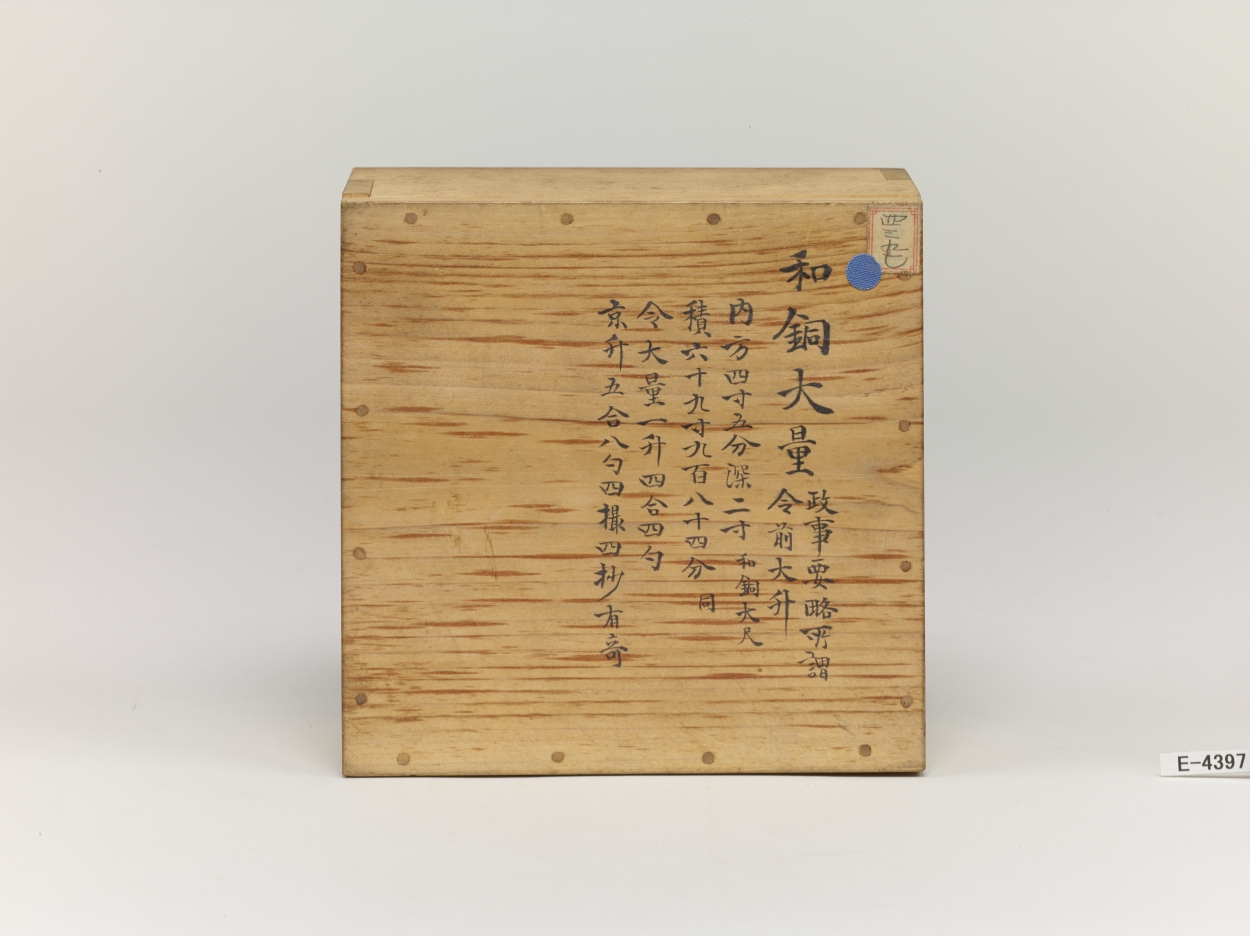 和銅大量
政事要略所謂
令前大升
内方四寸五分深二寸 和銅大尺
積六十九寸九百八十四分 同
令大量一升四合四勺
京升五合八勺四撮四抄有奇
E-4397